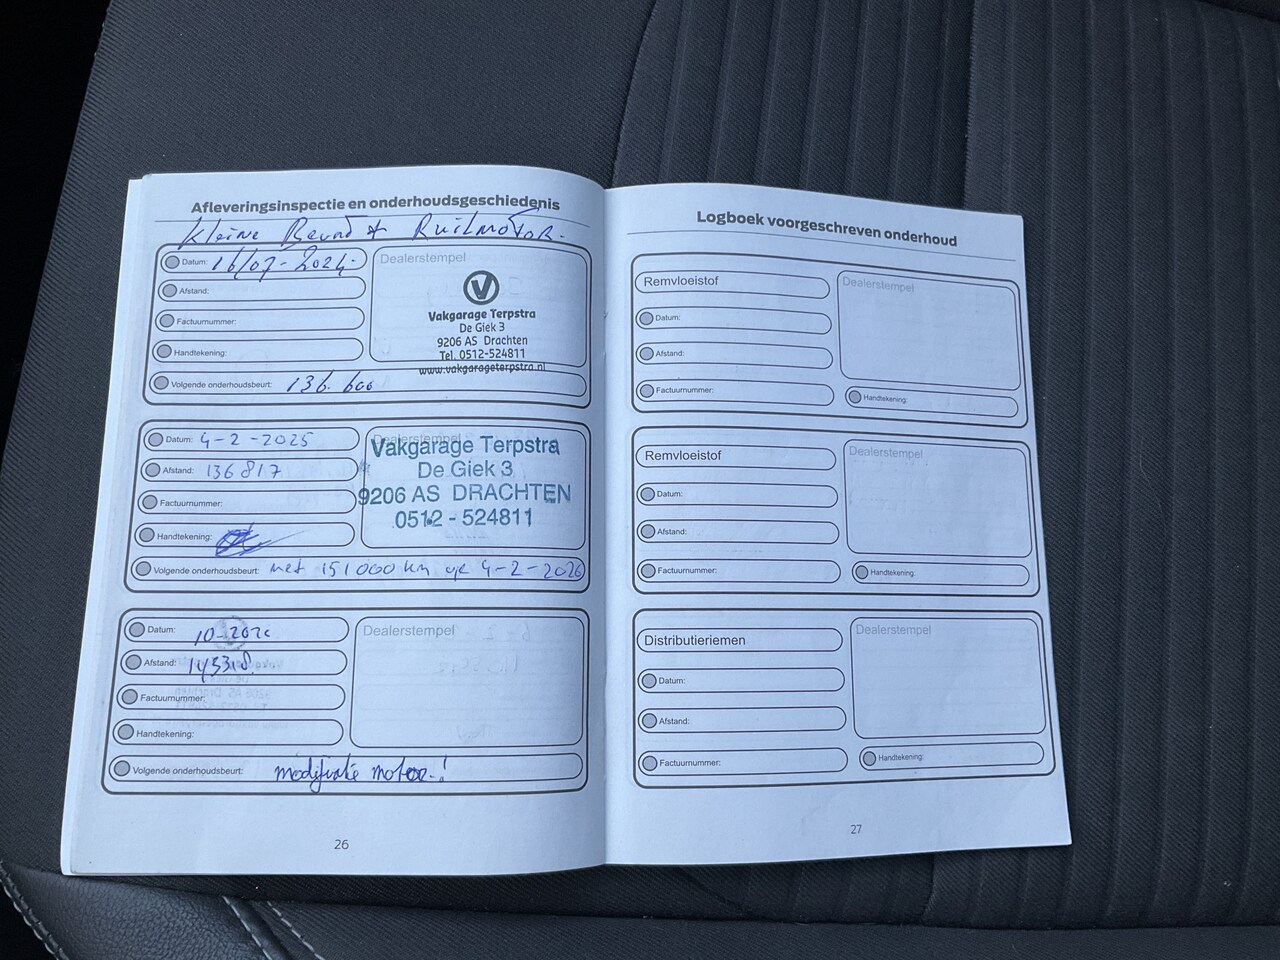 Afleveringsinspectie en onderhoudsgeschiedenis
Kleine Beurt + Ruilmotor.
Datum: 16/07-2024.
Afstand:
Factuurnummer:
Handtekening:
Volgende onderhoudsbeurt: 136.600
Dealerstempel
Vakgarage Terpstra
De Giek 3
9206 AS Drachten
Tel. 0512-524811
www.vakgarageterpstra.nl
Datum: 4-2-2025
Afstand: 136817
Factuurnummer:
Handtekening:
Volgende onderhoudsbeurt: met 151000 km op 4-2-2026
Dealerstempel
Vakgarage Terpstra
De Giek 3
9206 AS DRACHTEN
0512 - 524811
Datum:
Afstand:
Factuurnummer:
Handtekening:
Volgende onderhoudsbeurt: modificatie motor.!
Dealerstempel
26
Logboek voorgeschreven onderhoud
Remvloeistof
Datum:
Afstand:
Factuurnummer:
Dealerstempel
Handtekening:
Remvloeistof
Datum:
Afstand:
Factuurnummer:
Dealerstempel
Handtekening:
Distributieriemen
Datum:
Afstand:
Factuurnummer:
Dealerstempel
Handtekening:
27